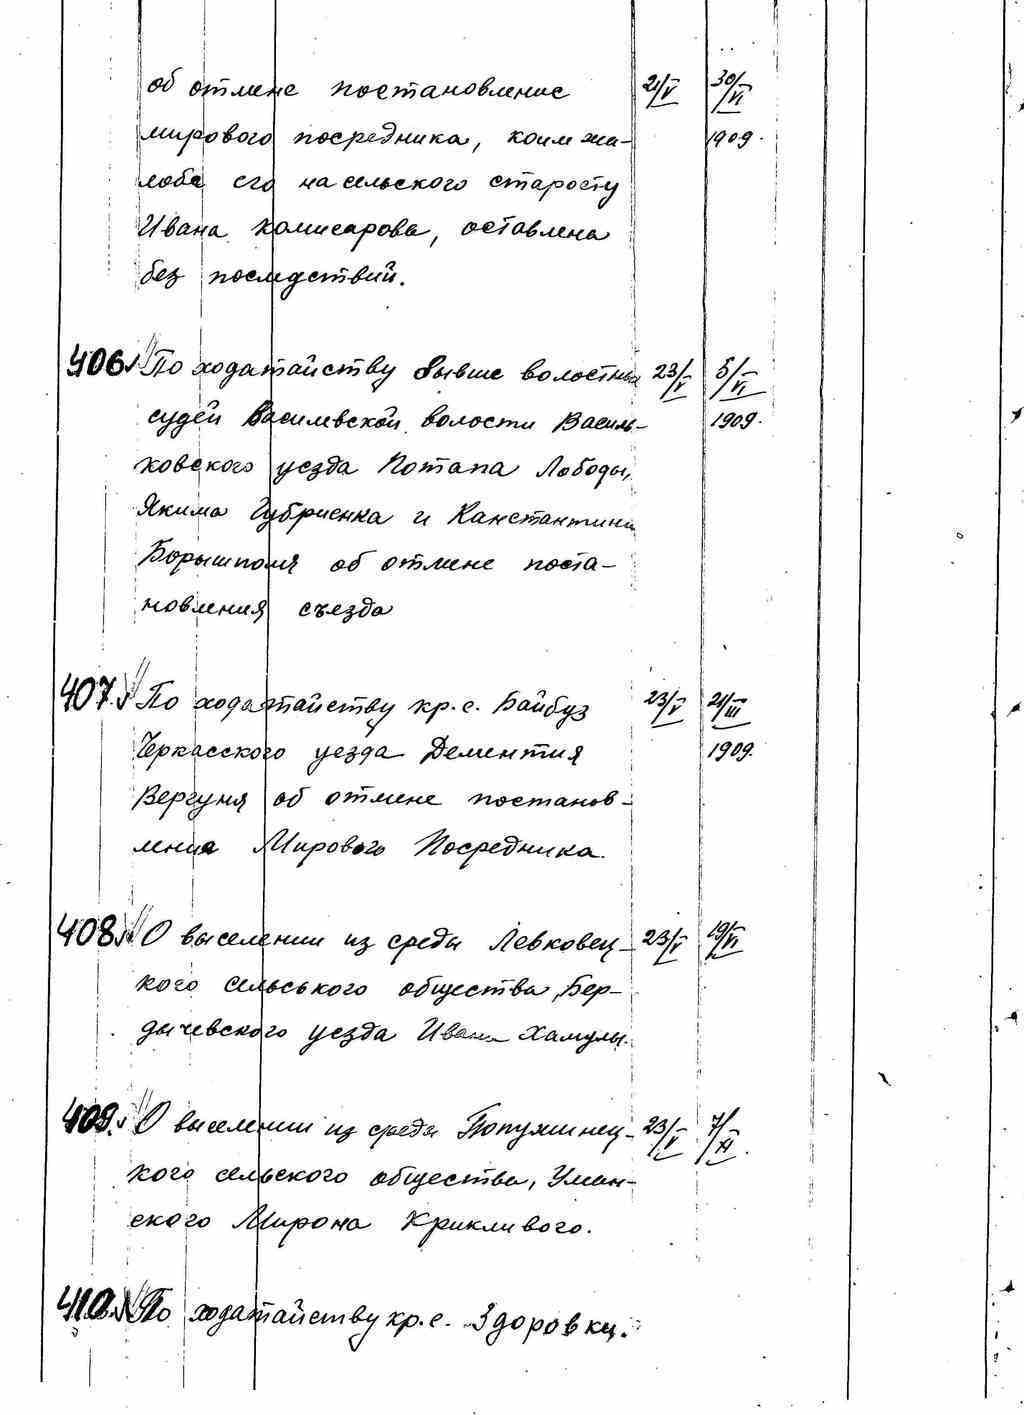 об отмене постановление 21/V 30/VI
мирового посредника, коим жа- 1909.
лоба его на сельского старосту
Ивана Комисарова, оставлена
без последствий.
406. По ходатайству бывше волостных 23/V 5/VI
судей Василевской волости Василь- 1909.
ковского уезда Потапа Лободы,
Якима Губриенка и Канстантина
Борышполя об отмене поста-
новления съезда
407. По ходатайству кр. с. Байбуз 23/V 21/III
Черкасского уезда Дементия 1909.
Вергуня об отмене постанов-
ления Мирового Посредника.
408. О выселении из среды Левковец- 23/V 19/VI
кого сельського общества, Бер-
дычевского уезда Ивана Хамулы.
409. О выселении из среды Попужинец- 23/V 7/XI.
кого сельского общества, Уман-
ского Мирона Крикливого.
410. По ходатайству кр. с. Здоровки.